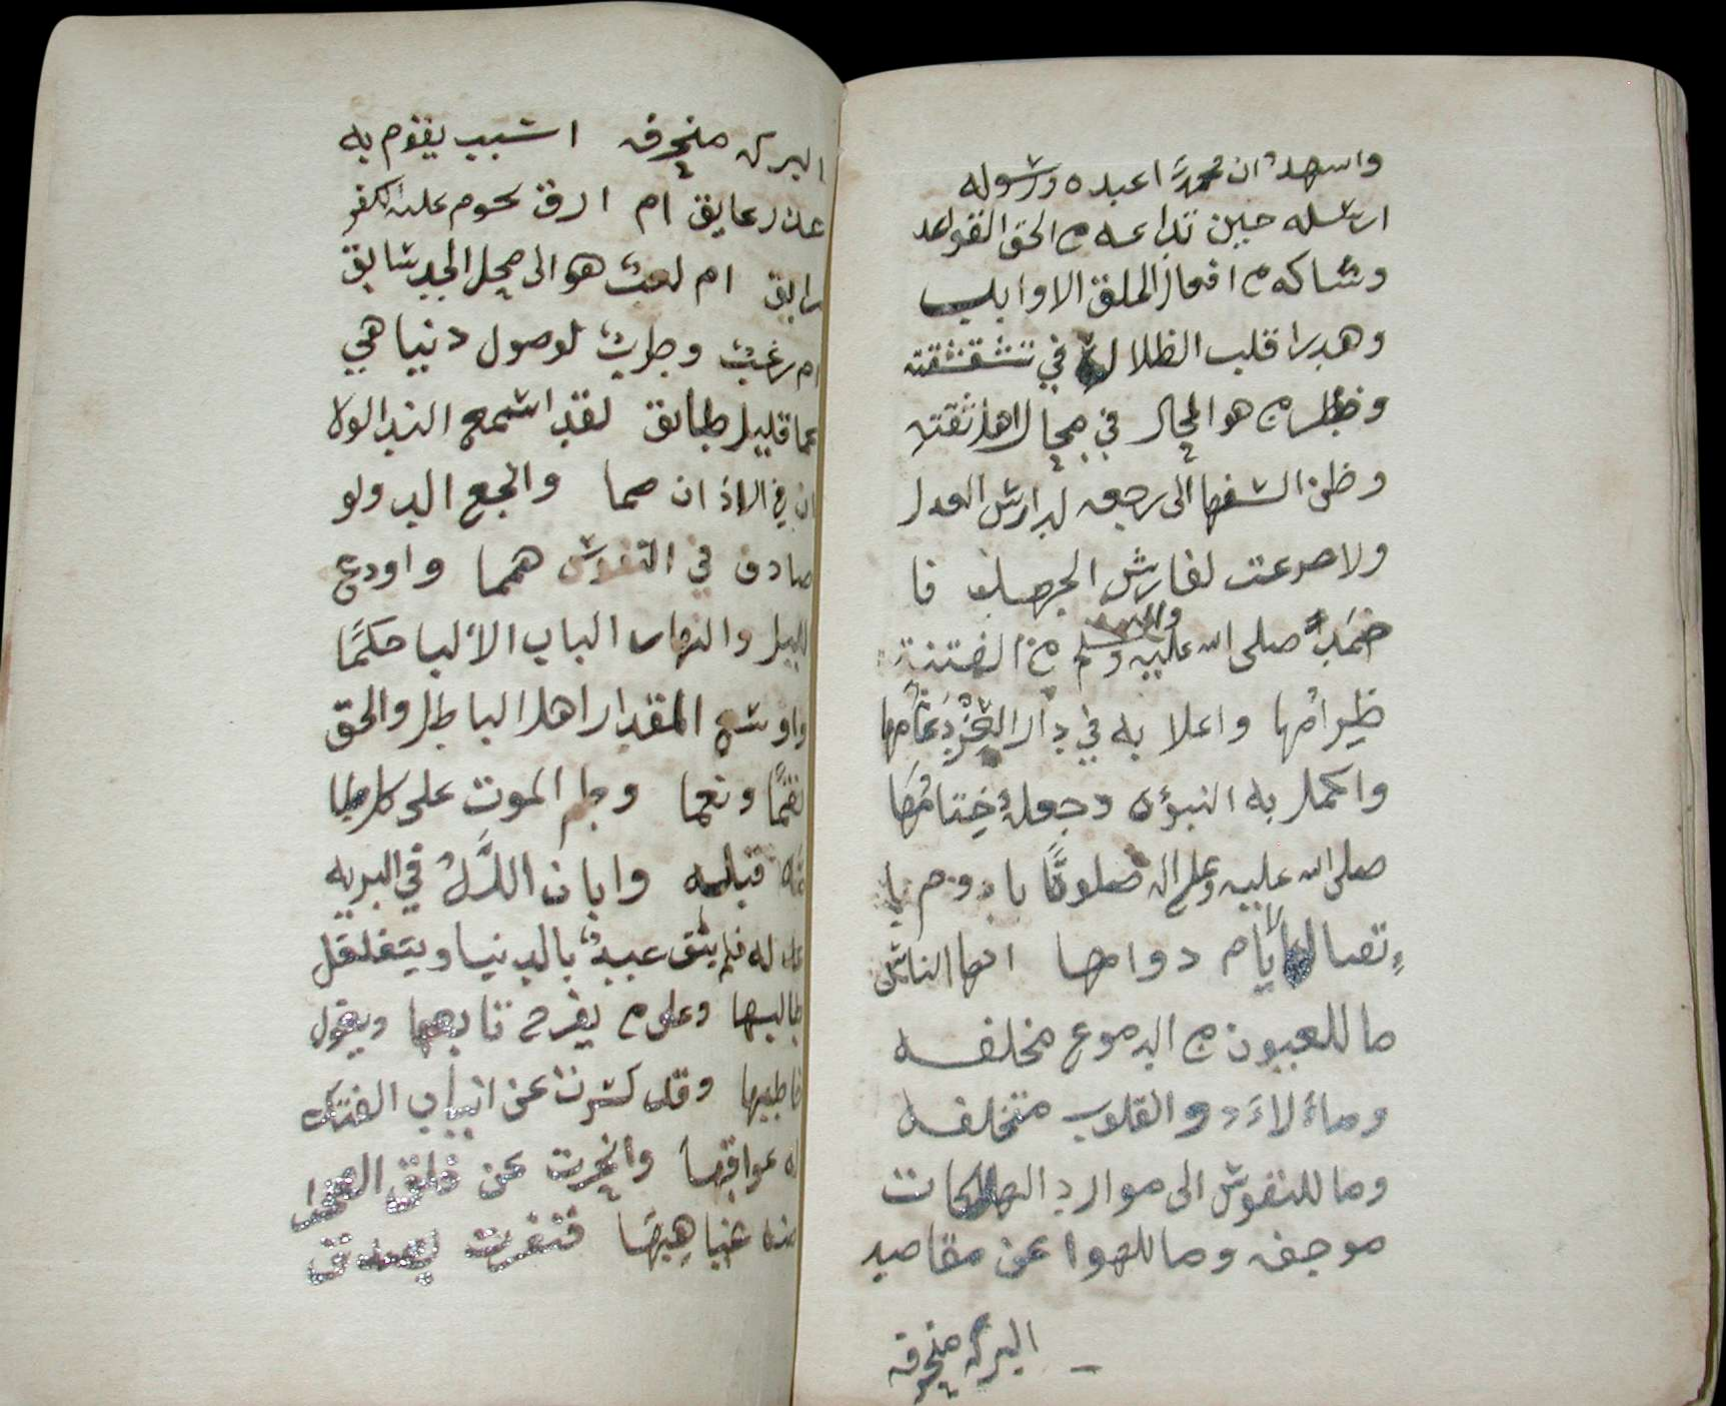 واشهد ان محمدًا عبده ورسوله
ارسله حين تداعـه من الحق القواعد
وشاكه من افحاز الملق الاوابلـ
وهدرا قلب الظلالة في تشقشقته
وظل من هو المحال في مجال اهل ثقته
وظن السفها الى رجعه لدارس العدل
ولا صرعت لفارس الجهله فا
خمَد صلى الله عليه واله وسلم من الفتنة
ظِرامُها واعلا به في دار العز دعامها
واكمل به النبؤه وجعلهُ خِتامُهَا
صلى الله عليه وعلى اله صلوتًا يا دوم يا
تصال الأيام دوامها ايها الناس
ما للعيون من الدموع مخلفه
وما لاءَ دو القلوب متخلفه
وما للنفوس الى موارد الهلكات
موجفه وما للهوا عن مقاصد
البركه منحرفه
البركه منحرفه اسبب يقوم به
عذر عايق ام ارق يحوم عليه لكفر
سابق ام لعب هو الى محل الجد سابق
ام رغبت وطربت لوصول دنيا هي
عما قليل طالق لقد اسمع الندا لولا
ان في الاذان صما وانجع الدو لو
صادف في النفوس همما واودع
الليل والنهار الباب الألبا حكمًا
واوسع المقدار اهل الباطل والحق
نقمًا ونعما وجم الموت على كل
قبله وابان الذلُ في البريه
له فلم يثق عبدٌ بالدنيا ويتغلقل
طالبها وعلى من يفرح تابعها ويقول
خاطبها وقد كشرت عن انياب الفتك
له عواقبها وانحرت عن فلق
منه غياهبها فتفرت